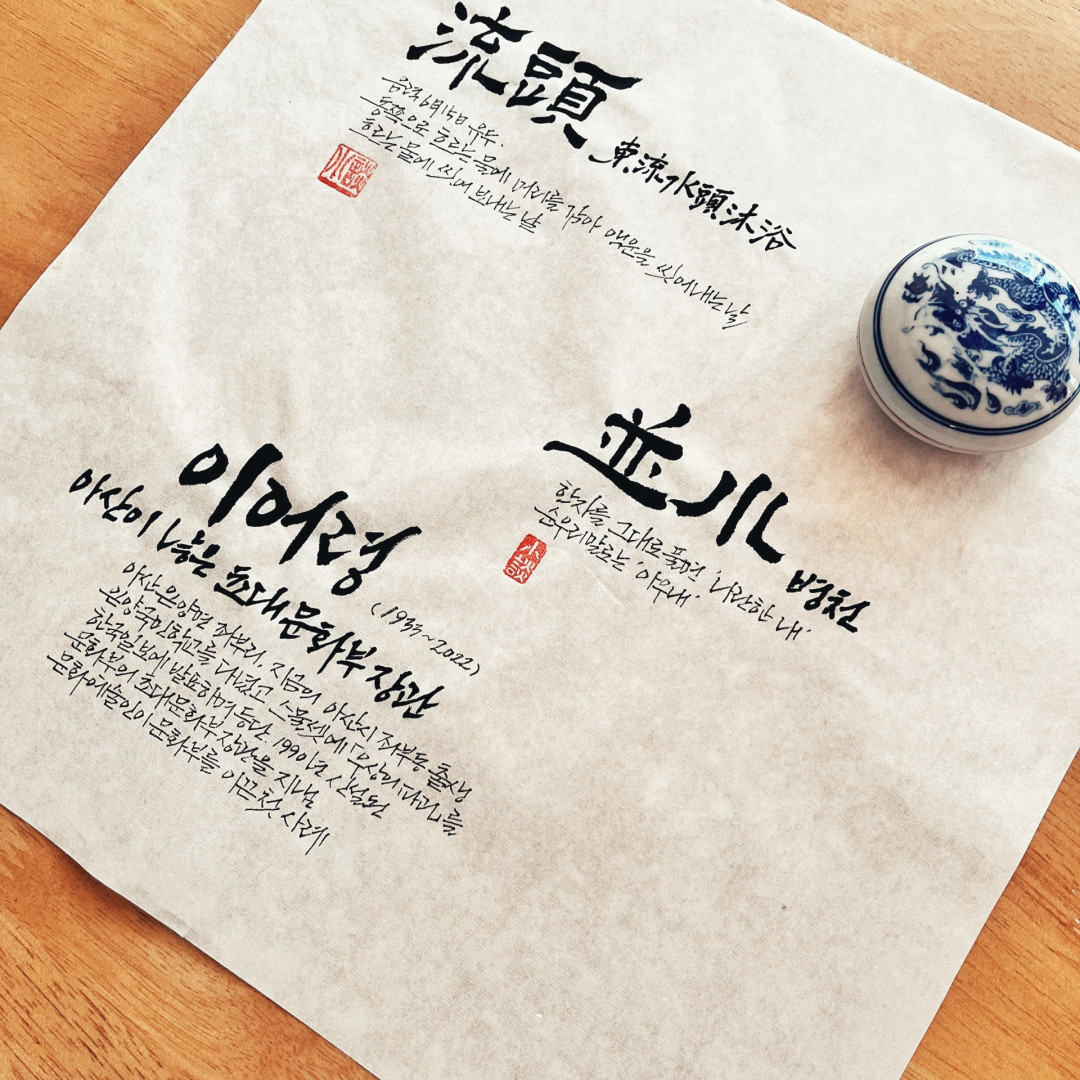 流頭
東流水頭沐浴
음력 6월 15일 유두.
동쪽으로 흐르는 물에 머리를 감아 액운을 씻어내는 날
흐르는 물에 씻어 보내는 날
小談
並川 병천
한자를 그대로 풀면 '나란한 내'
순우리말로는 '아우내'
小談
이어령 (1933~2022)
아산이 낳은 초대문화부장관
아산 온양면 좌부리, 지금의 아산시 좌부동 출생
온양국민학교를 다녔고 스물셋에 「우상의 파괴」를
한국일보에 발표하며 등단. 1990년 신설된
문화부의 초대문화부장관을 지냄
문화예술인이 문화부를 이끈 첫 사례